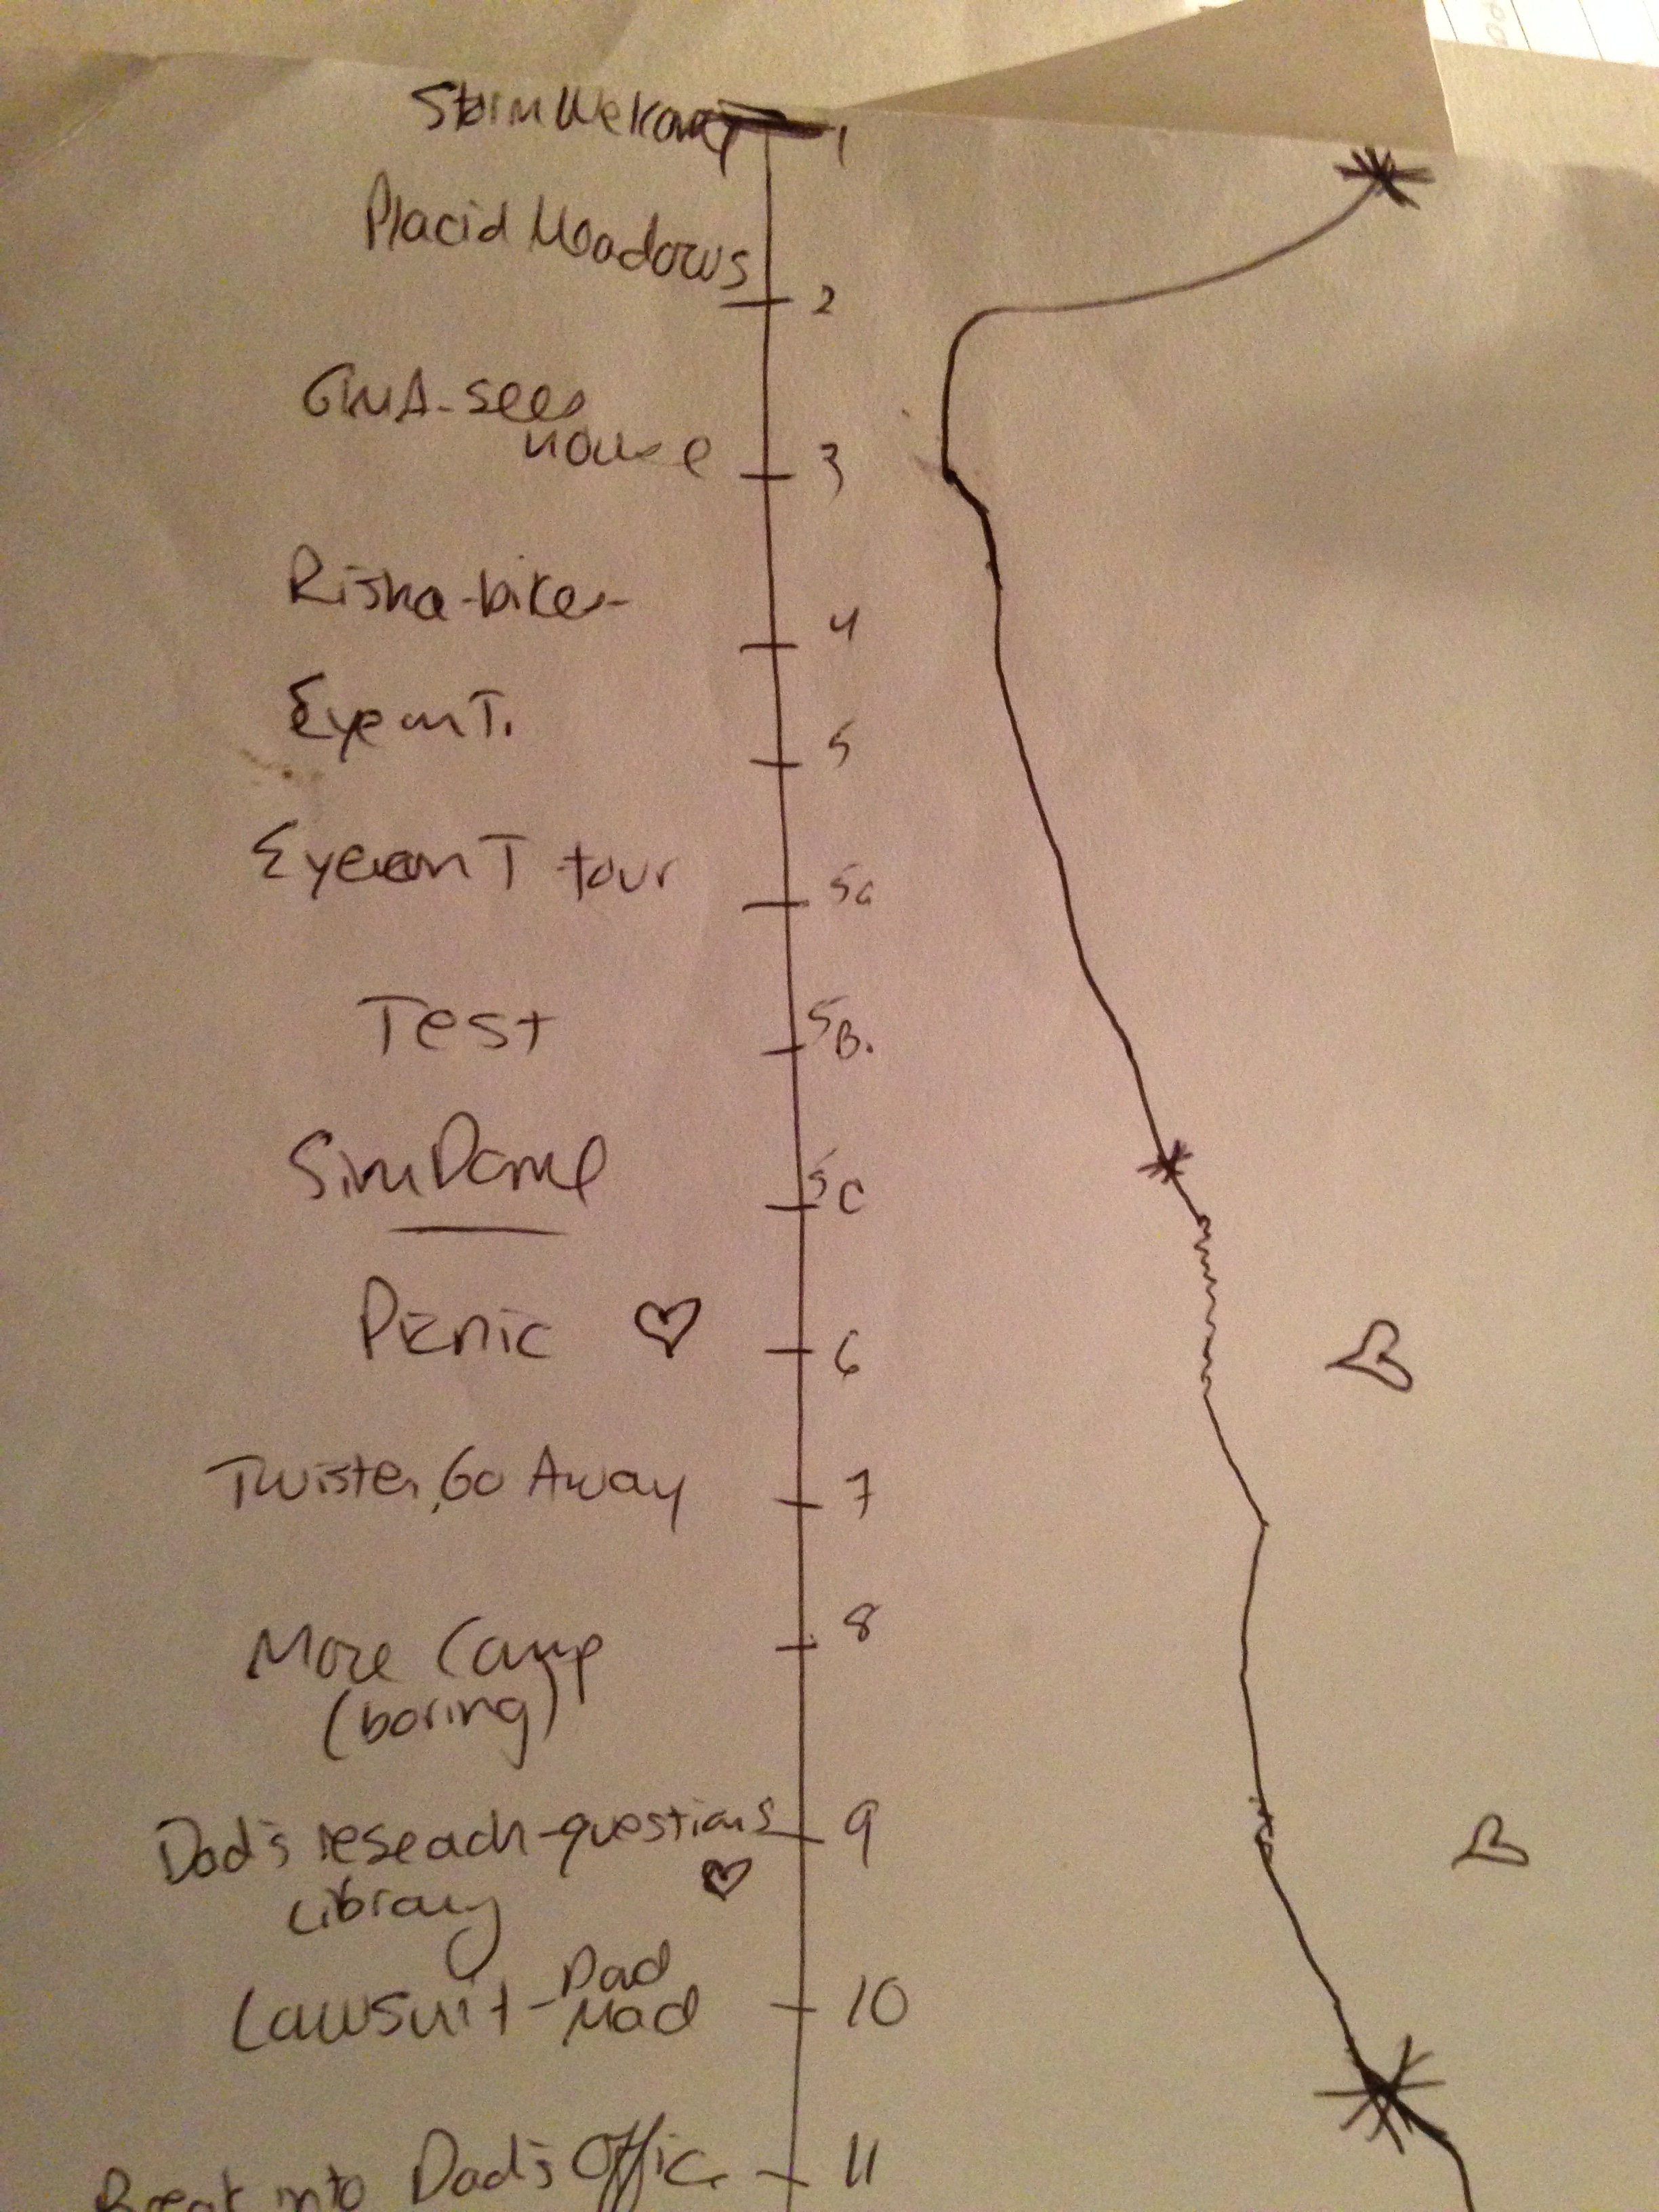 Storm 1
Placid Meadows
2
GMA-sees
house 3
Risha-bikes-
4
Eye on T.
5
Eye on T tour
5a
Test
5B.
SimDome
5C
Picnic
6
Twister, Go Away 7
More Camp 8
(boring)
Dad's reseach-questions 9
Library
Lawsuit-Dad
Mad 10
Break into Dad's Office 11